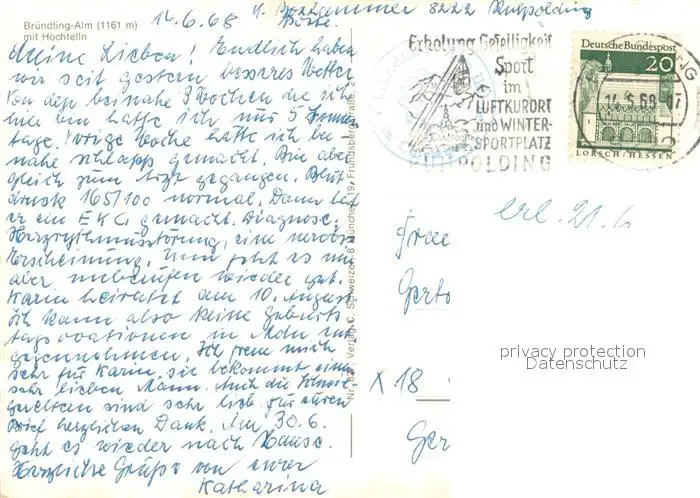 Bründling-Alm (1161 m)
mit Hochfelln
14.6.68
8222 Ruhpolding
Meine Lieben! Endlich haben
wir seit gestern besseres Wetter
Von den beinahe 3 Wochen die ich
hier bin hatte ich nur 5 Sonnen
tage. Vorige Woche hatte ich bei
nahe schlapp gemacht. Bin aber
gleich zum Arzt gegangen. Blut
druck 165/100 normal. Dann hat
er ein EKG gemacht. Diagnose:
Herzrythmusstörung, eine nervöse
Erscheinung. Nun geht es mir
aber unberufen wieder gut.
Karin heiratet am 10. August
Ich kann also keine Geburts
tagsovationen in Köln ent
gegennehmen. Ich freue mich
sehr für Karin, sie bekommt einen
sehr lieben Mann. Auch die Schwie
gereltern sind sehr lieb. Für euren
Brief herzlichen Dank. Am 30.6.
geht es wieder nach Hause.
Herzliche Grüße von eurer
Katharina
Verlag C. Schweizer, 8 München 19, Frundsbergstraße
Erholung Geselligkeit
Sport
im
LUFTKURORT
und WINTER-
SPORTPLATZ
RUHPOLDING
Deutsche Bundespost
20
LORSCH/HESSEN
erl. 21.6
X 18
privacy protection
Datenschutz